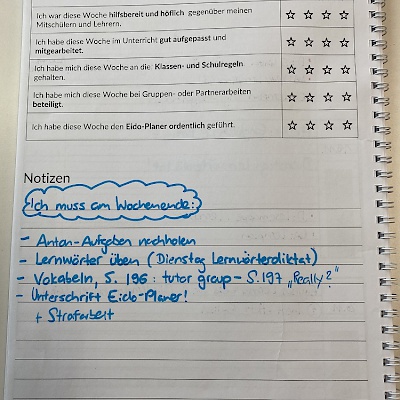 Ich war diese Woche hilfsbereit und höflich gegenüber meinen
Mitschülern und Lehrern.
Ich habe diese Woche im Unterricht gut aufgepasst und
mitgearbeitet.
Ich habe mich diese Woche an die Klassen- und Schulregeln
gehalten.
Ich habe mich diese Woche bei Gruppen- oder Partnerarbeiten
beteiligt.
Ich habe diese Woche den Eido-Planer ordentlich geführt.
Notizen
Ich muss am Wochenende:
- Anton-Aufgaben nachholen
- Lernwörter üben (Dienstag Lernwörterdiktat)
- Vokabeln, S. 196 : tutor group - S. 197 „Really?“
- Unterschrift Eido-Planer!
+ Strafarbeit